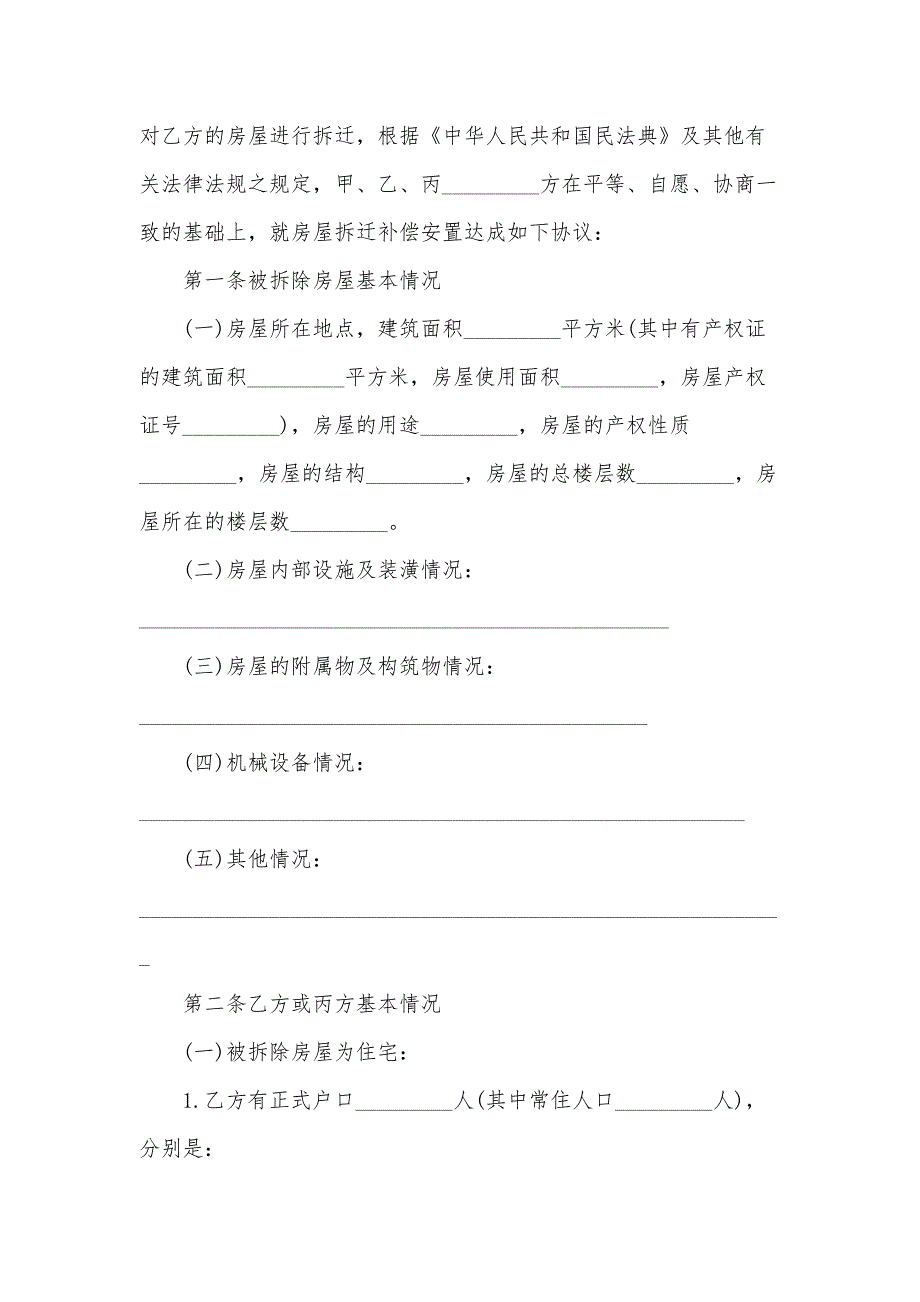 对乙方的房屋进行拆迁，根据《中华人民共和国民法典》及其他有
关法律法规之规定，甲、乙、丙_________方在平等、自愿、协商一
致的基础上，就房屋拆迁补偿安置达成如下协议：
第一条被拆除房屋基本情况
(一)房屋所在地点，建筑面积_________平方米(其中有产权证
的建筑面积_________平方米，房屋使用面积_________，房屋产权
证号_________)，房屋的用途_________，房屋的产权性质
_________，房屋的结构_________，房屋的总楼层数_________，房
屋所在的楼层数_________。
(二)房屋内部设施及装潢情况：
_________________________________________________
(三)房屋的附属物及构筑物情况：
_______________________________________________
(四)机械设备情况：
________________________________________________________
(五)其他情况：
___________________________________________________________
_
第二条乙方或丙方基本情况
(一)被拆除房屋为住宅：
1.乙方有正式户口_________人(其中常住人口_________人)，
分别是：